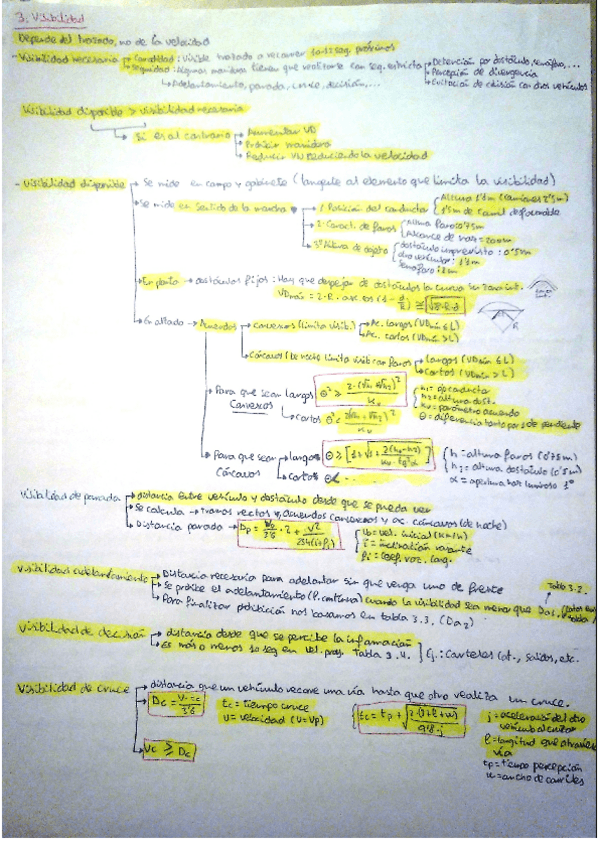 3. Visibilidad
Depende del trazado, no de la velocidad
- Visibilidad necesaria → Comodidad: Visible trazado a recorrer 10-12 seg. próximos
→ Seguridad: Algunas maniobras tienen que realizarse con seg. estricta → Detención por obstáculo, semáforo,...
→ Percepción de divergencia
→ Adelantamiento, parada, cruce, decisión,... → Evitación de colisión con otros vehículos
Visibilidad disponible > Visibilidad necesaria
Si es al contrario → Aumentar VD
→ Prohibir maniobra
→ Reducir VN reduciendo la velocidad
- Visibilidad disponible → Se mide en campo y gabinete (tangente al elemento que limita la visibilidad)
→ Se mide en sentido de la marcha → 1º Posición del conductor { Altura 1'1m (camiones 2'5m)
1'5m de carril
→ 2º Caract. de faros { Altura faro: 0'75m
Alcance de = 200m
→ 3º Altura de objeto { obstáculo imprevisto: 0'5m
otro vehículo: 1'1m
semáforo:
→ En planta → obstáculos fijos: Hay que despejar de obstáculos la curva en zona int.
VDmáx = 2·R·arc cos (1 - d/R) ≅ √8·R·d
→ En alzado → Acuerdos → convexos (limita visib.) → Ac. largos (VDmín ≤ L)
→ Ac. cortos (VDmín > L)
→ Cóncavos (De noche limita visib. con faros → largos (VDmín ≤ L)
→ cortos (VDmín > L)
→ Para que sean largos Θ² ≥ 2·(√h₁ + √h₂)² / Kv { h₁ = op. conducta
convexos h₂ = altura obst.
→ cortos Θ² < 2(√h₁ + √h₂)² / Kv Kv = parámetro acuerdo
Θ = diferencia tanto por 1 de pendiente
→ Para que sean → largos
cóncavos { h = altura faros (0'75m)
→ cortos Θ < ... h₂ = altura obstáculo (0'5m)
α = apertura haz luminoso 1º
Visibilidad de parada → distancia entre vehículo y obstáculo desde que se pueda ver
→ Se calcula → tramos rectos y acuerdos convexos y ac. cóncavos (de noche)
→ Distancia parada → { = vel. inicial (km/h)
i = inclinación rasante
= coef. roz. long.
Visibilidad adelantamiento → Distancia necesaria para adelantar sin que venga uno de frente
→ Se prohíbe el adelantamiento (l. continua) cuando la visibilidad sea menor que Da₁. Tabla 3.2.
→ Para finalizar prohibición nos basamos en tabla 3.3. (Da₂)
Visibilidad de decisión → distancia desde que se percibe la información
→ Es más o menos 10 seg en vel. proy. Tabla 3.4. } Ej.: Carteles salidas, etc.
Visibilidad de cruce → distancia que un vehículo recorre una vía hasta que otro realiza un cruce.
→ tc = tiempo cruce tc = tp + √2·(3+l+w) / 9'8·j j = aceleración del otro
V = velocidad (V=Vp) vehículo al cruzar
l = longitud que atraviesa
vía
→ Vc ≥ Dc tp = tiempo percepción
w = ancho de carriles